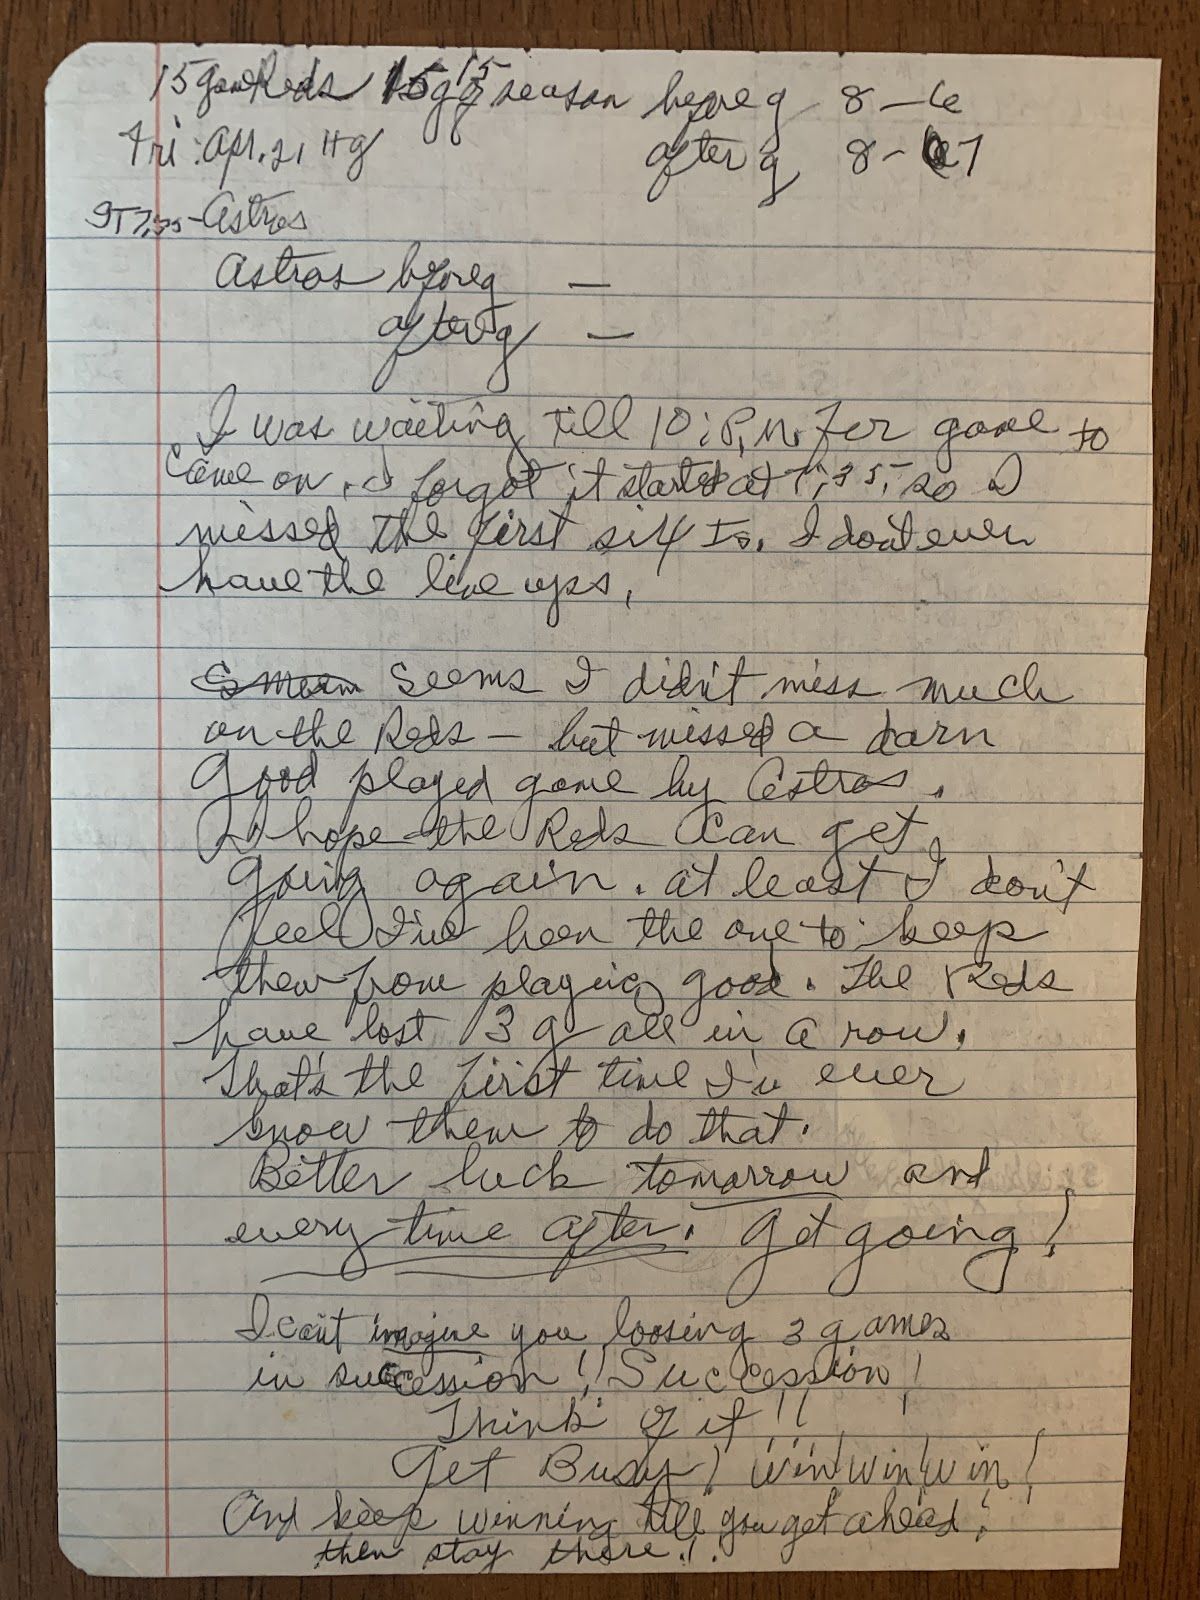 15 game Reds 15 g season before g 8-6
Fri. Apr. 21 Hg after g 8-7
ST 7:35 - Astros
Astros before g —
after g —
I was waiting till 10: P.M. for game to
come on. I forgot it started at 7:35, so I
missed the first six Is. I don't even
have the line ups.
Seems I didn't miss much
on the Reds - but missed a darn
good played game by Astros.
I hope the Reds can get
going again. at least I don't
feel I've been the one to keep
them from playing good. The Reds
have lost 3 g all in a row.
That's the first time I'v ever
know them to do that.
Better luck tomorrow and
every time after. Get going!
I cant imagine you loosing 3 games
in succession!! Succession!
Think of it!!
Get Busy! Win! Win! Win!
And keep winning till you get ahead!
then stay there!.